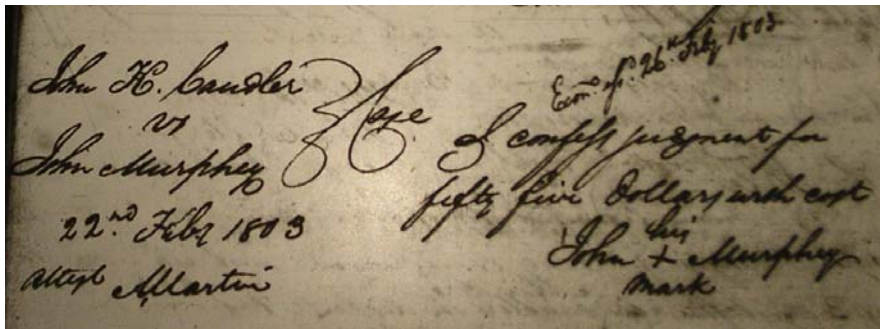 John H. Candler
vs
John Murphey
22nd Feby 1803
attest Martin
Case
26th Feby 1803
I confess judgment for
fifty five Dollars with cost
his
John + Murphey
mark